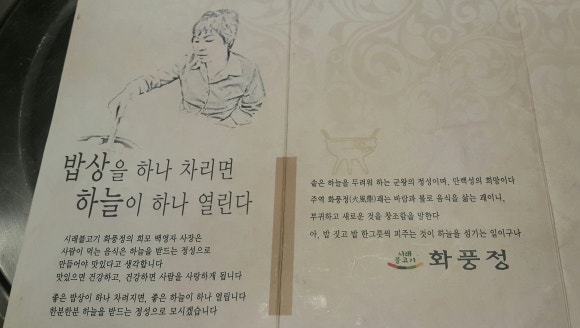 밥상을 하나 차리면
하늘이 하나 열린다
시래불고기 화풍정의 희모 백영자 사장은
사람이 먹는 음식은 하늘을 받드는 정성으로
만들어야 맛있다고 생각합니다
맛있으면 건강하고, 건강하면 사람을 사랑하게 됩니다
좋은 밥상이 하나 차려지면, 좋은 하늘이 하나 열립니다
한분한분 하늘을 받드는 정성으로 모시겠습니다
솥은 하늘을 두려워 하는 군왕의 정성이며, 만백성의 희망이다
주역 화풍정(火風鼎)괘는 바람과 불로 음식을 삶는 괘이니,
부귀하고 새로운 것을 창조함을 말한다
아, 밥 짓고 밥 한그릇씩 퍼주는 것이 하늘을 섬기는 일이구나
시래
불고기
화풍정